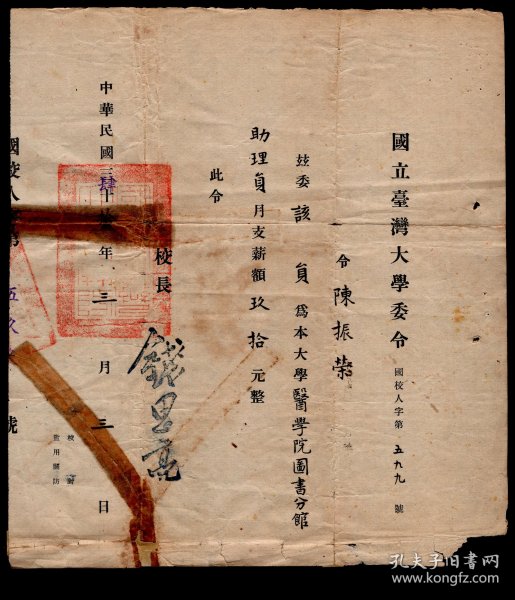 國立臺灣大學委令 國校人字第五九九號
令陳振榮
玆委該員爲本大學醫學院圖書分館
助理員月支薪額玖拾元整
此令
校長 錢思亮
中華民國三肆十年三月三日
校對
監用關防
國校人 號
孔夫子旧书网
www.kongfz.com